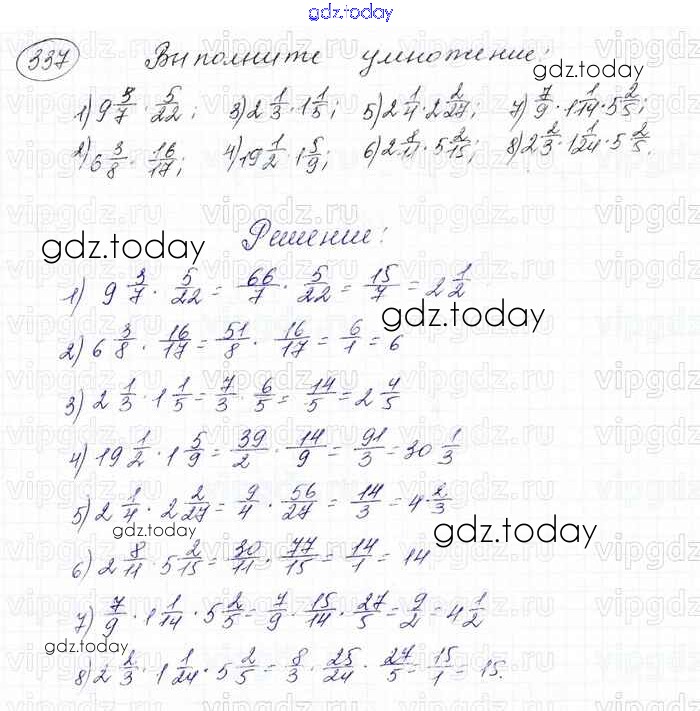 gdz.today
337 Выполните умножение:
1) 9 3/7 · 5/22; 3) 2 1/3 · 1 1/5; 5) 2 1/4 · 2 2/27; 7) 7/9 · 1 1/14 · 5 2/5;
2) 6 3/8 · 16/17; 4) 19 1/2 · 1 5/9; 6) 2 8/11 · 5 2/15; 8) 2 2/3 · 1 1/24 · 5 2/5.
gdz.today
Решение:
gdz.today
1) 9 3/7 · 5/22 = 66/7 · 5/22 = 15/7 = 2 1/2
gdz.today
2) 6 3/8 · 16/17 = 51/8 · 16/17 = 6/1 = 6
3) 2 1/3 · 1 1/5 = 7/3 · 6/5 = 14/5 = 2 4/5
4) 19 1/2 · 1 5/9 = 39/2 · 14/9 = 91/3 = 30 1/3
5) 2 1/4 · 2 2/27 = 9/4 · 56/27 = 14/3 = 4 2/3
gdz.today
gdz.today
6) 2 8/11 · 5 2/15 = 30/11 · 77/15 = 14/1 = 14
7) 7/9 · 1 1/14 · 5 2/5 = 7/9 · 15/14 · 27/5 = 9/2 = 4 1/2
gdz.today
8) 2 2/3 · 1 1/24 · 5 2/5 = 8/3 · 25/24 · 27/5 = 15/1 = 15.
gdz.today